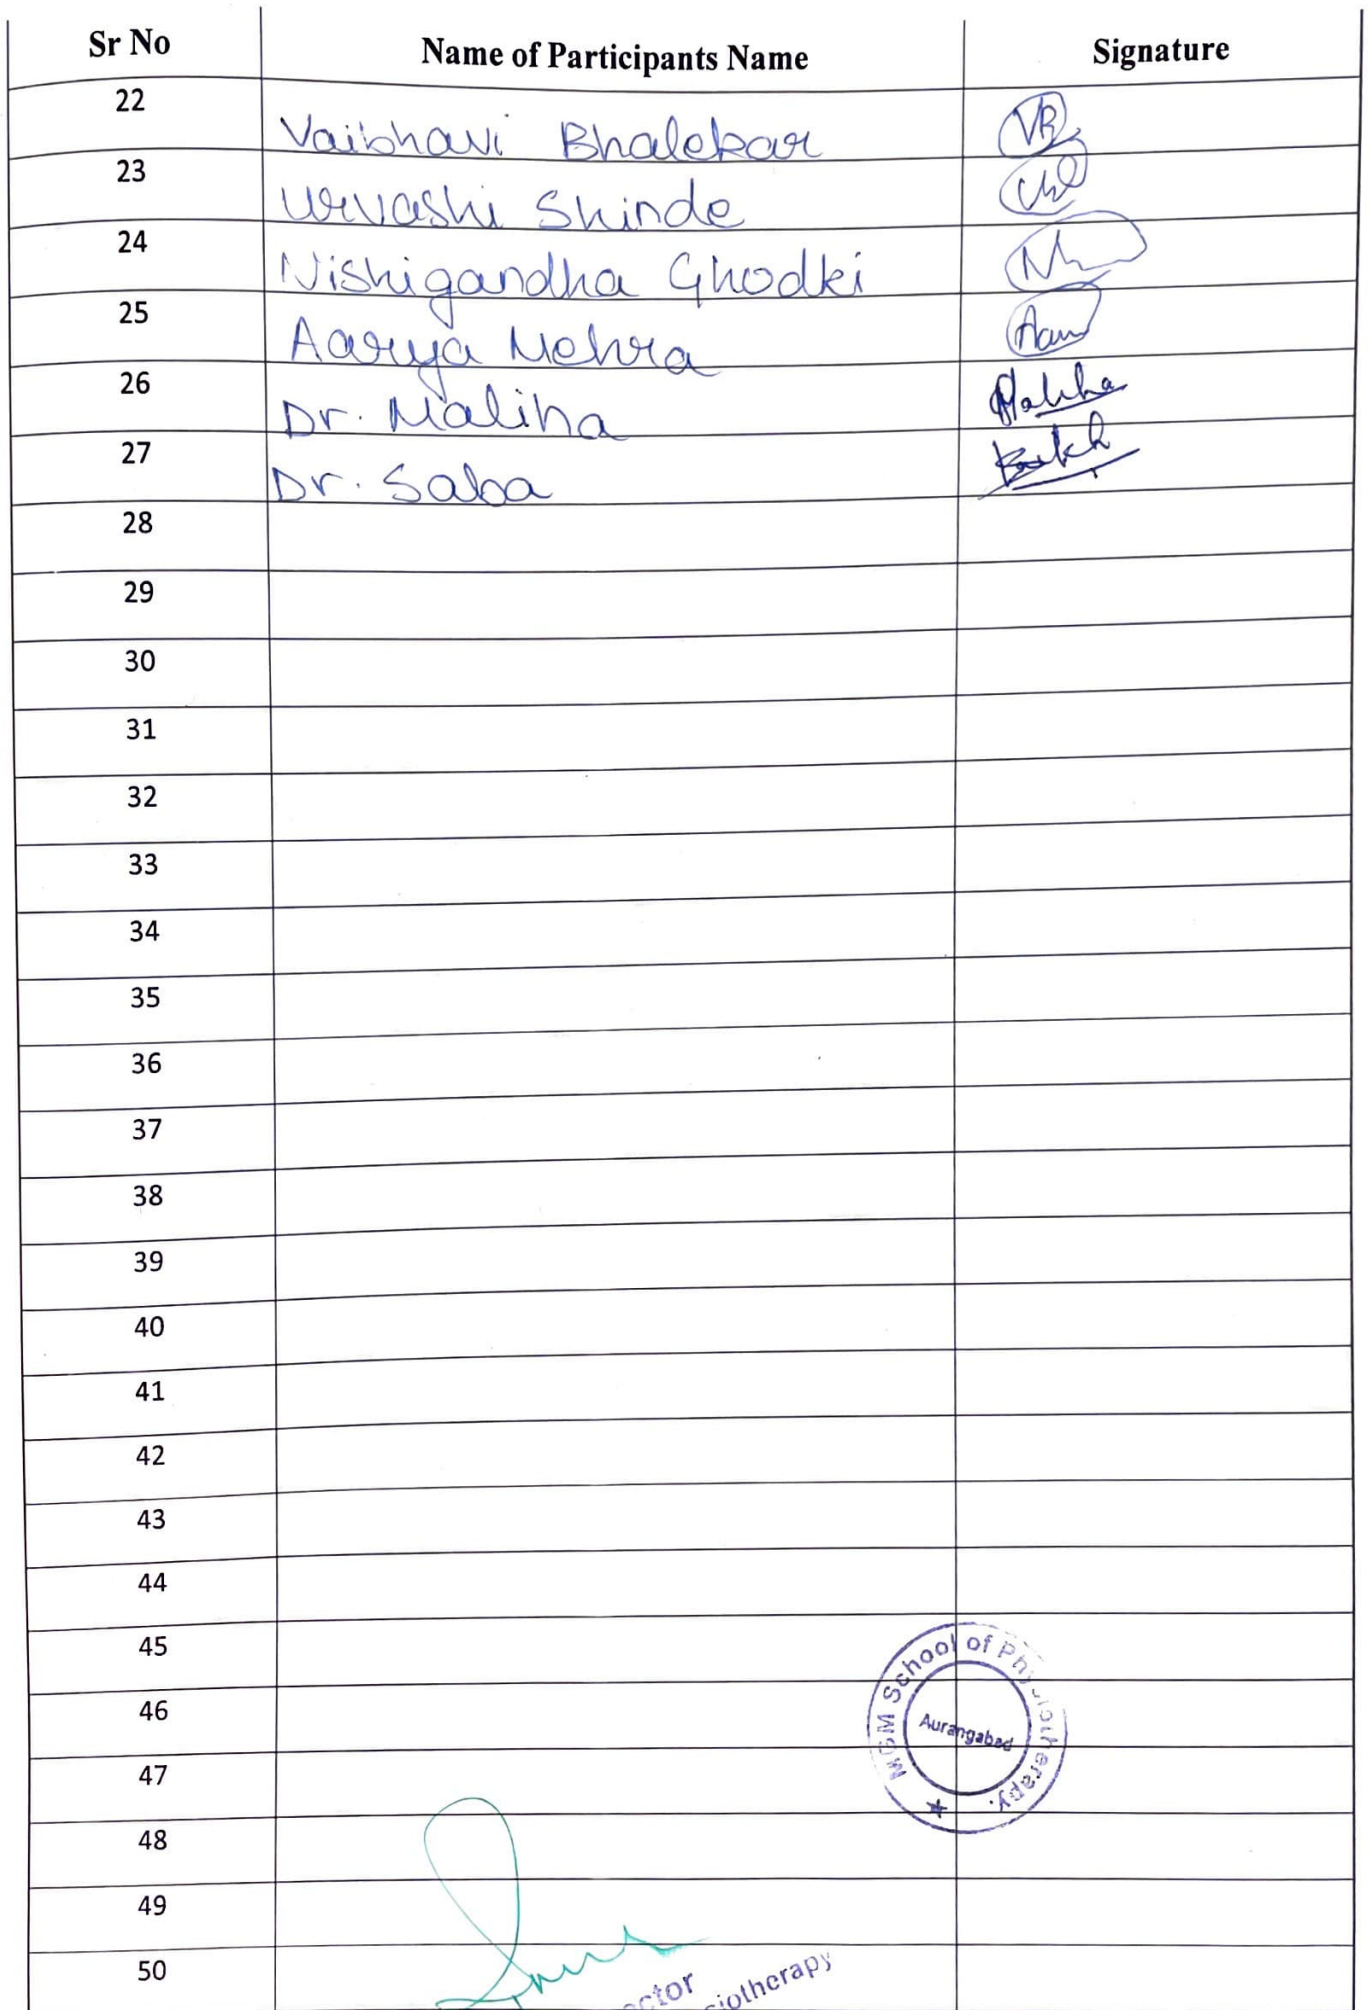 Sr No Name of Participants Name Signature
22 Vaibhavi Bhalekar VB
23 Urvashi Shinde
24 Nishigandha Ghodki
25 Aarya Mehra
26 Dr. Maliha Maliha
27 Dr. Saba
28
29
30
31
32
33
34
35
36
37
38
39
40
41
42
43
44
45
46
47
48
49
50
MGM School of Physiotherapy.
Aurangabad
ctor
siotherapy